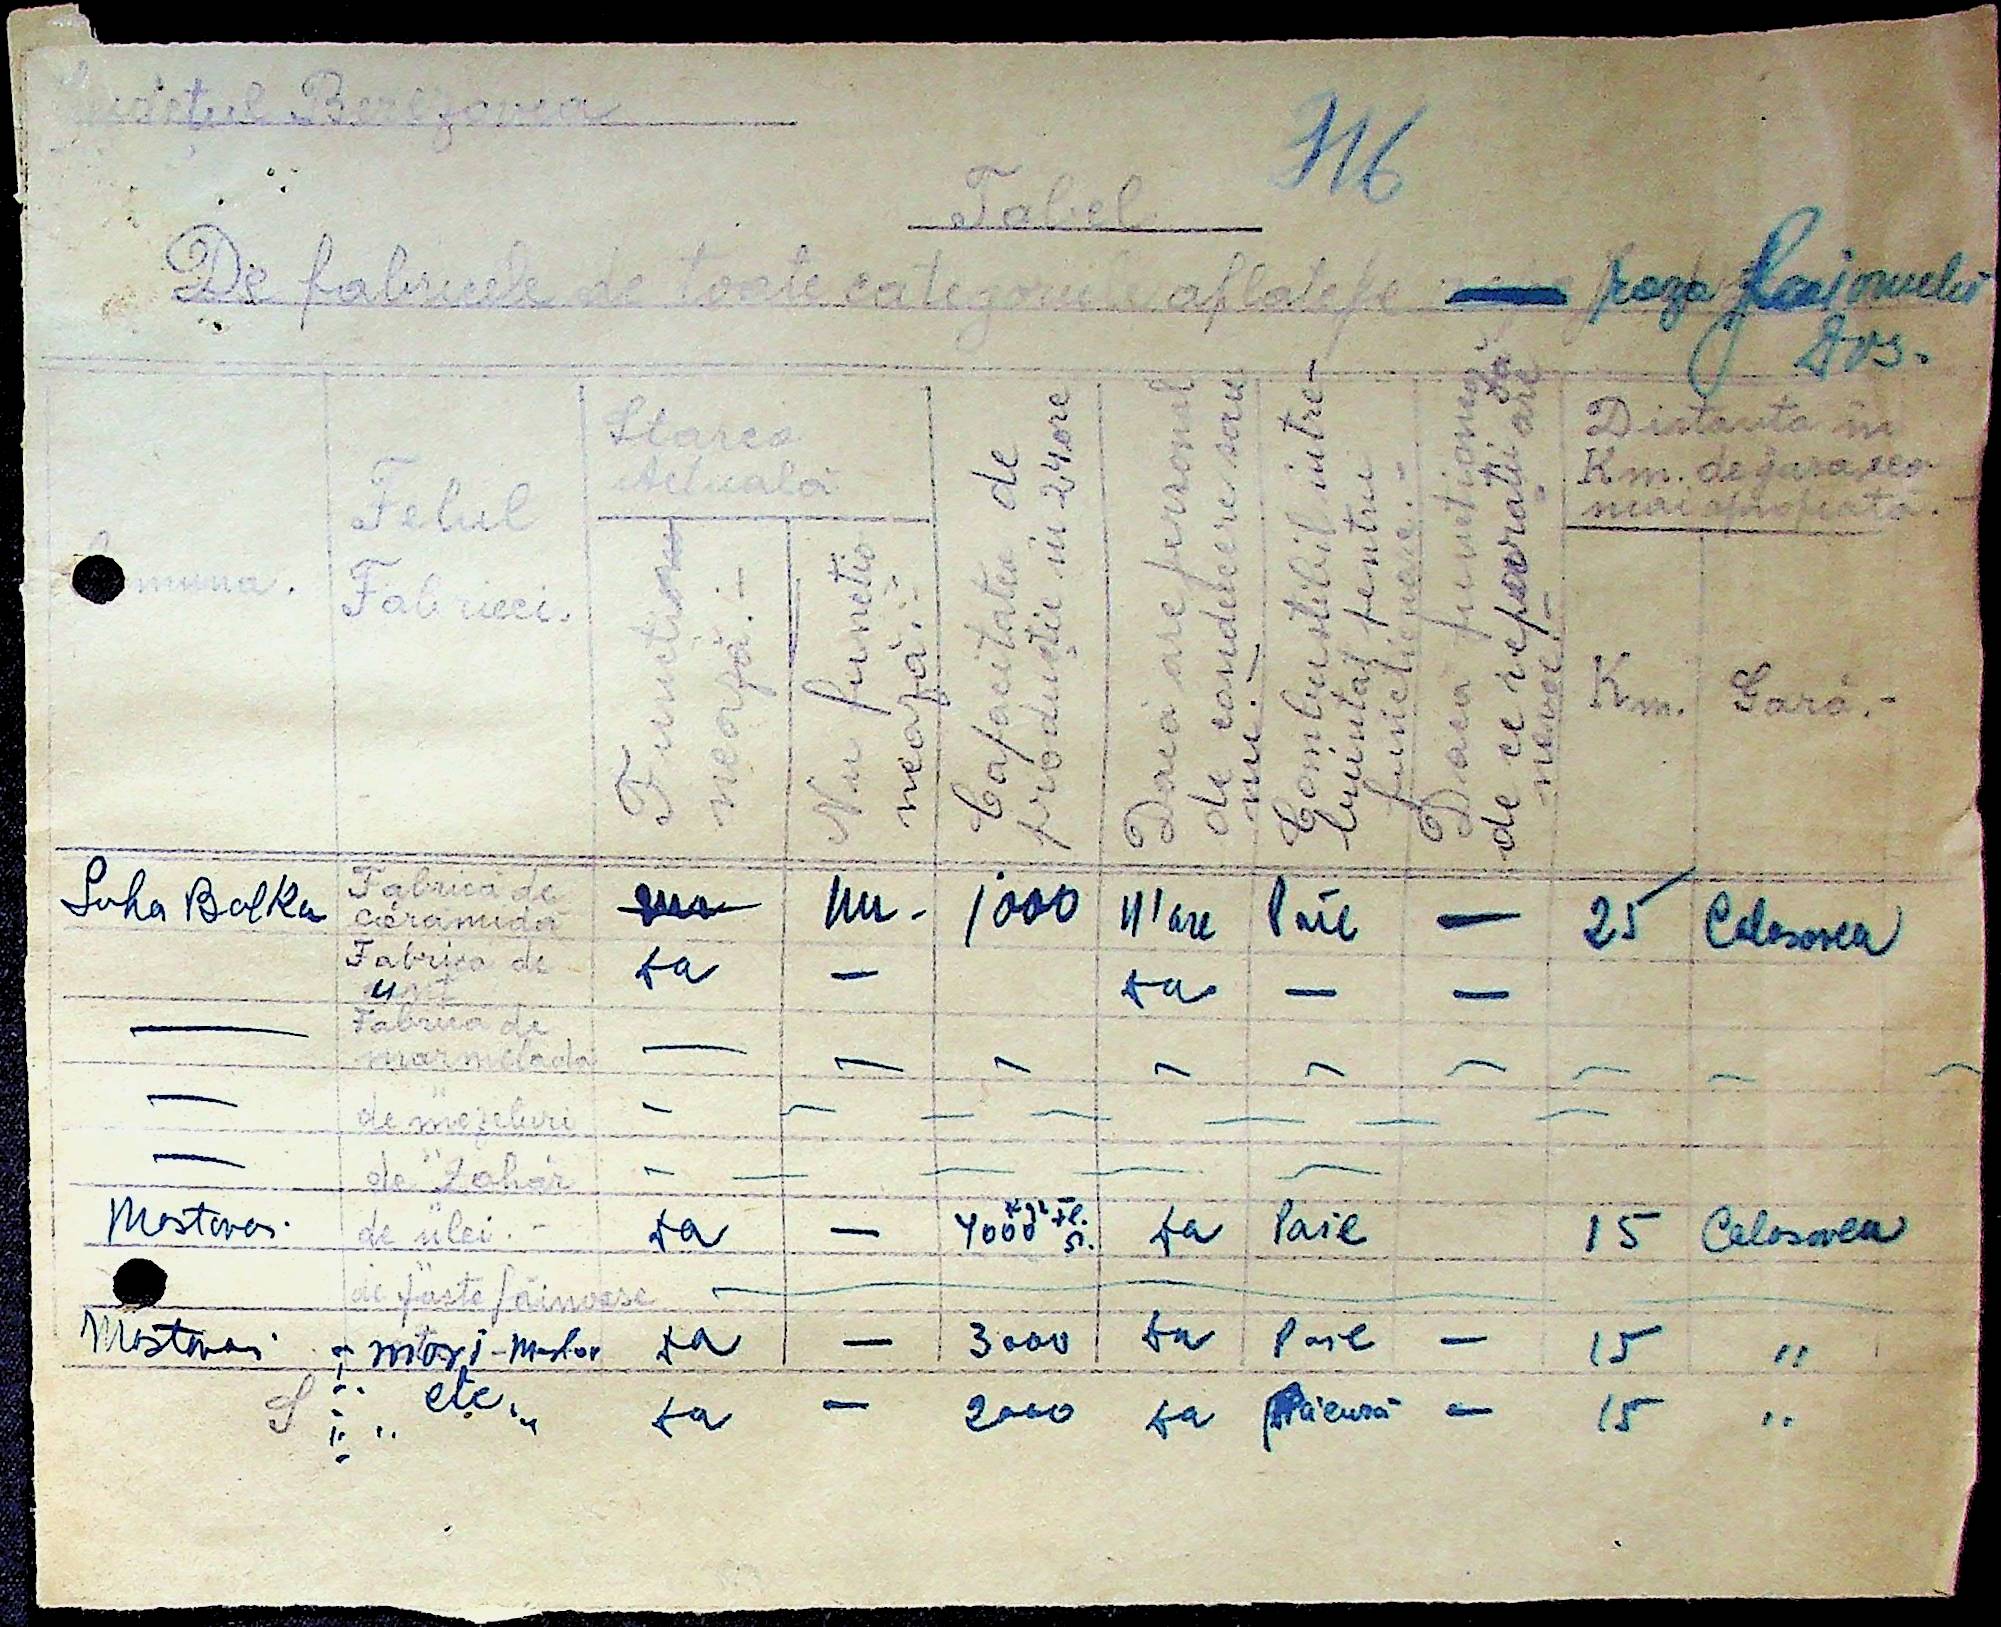 Judetul Berezovca
316
Tabel
De fabricele de toate categoriile aflate pe raza Raionului
Dvs.
Comuna.
Felul
Fabricei.
Starea
Actuală
Functio
nează.-
Nu functio
nează.-
Capacitatea de
producție in 24 ore
Dacă are personal
de conducere sau
nu.-
Combustibil intre-
buintat pentru
functionare.-
Daca functioneaza
de ce reparatii are
nevoe.-
Distanta în
Km. de gara cea
mai apropiata.-
Km.
Gară.-
Suha Balka Fabrică de cărămidă Nu - 1000 N'are Paie — 25
Fabrica de Da — Da — —
— Fabrica de marmeladă — — — — — — — —
— de mezeluri - — — — — — —
— de Zahăr - — — — —
Mostovoi. de ulei.- Da — 4000 Da Paie 15
de paste făinoase
Mostovoi mori Da — 3000 Da Paie — 15 "
etc. Da — 2000 Da Păcură — 15 "